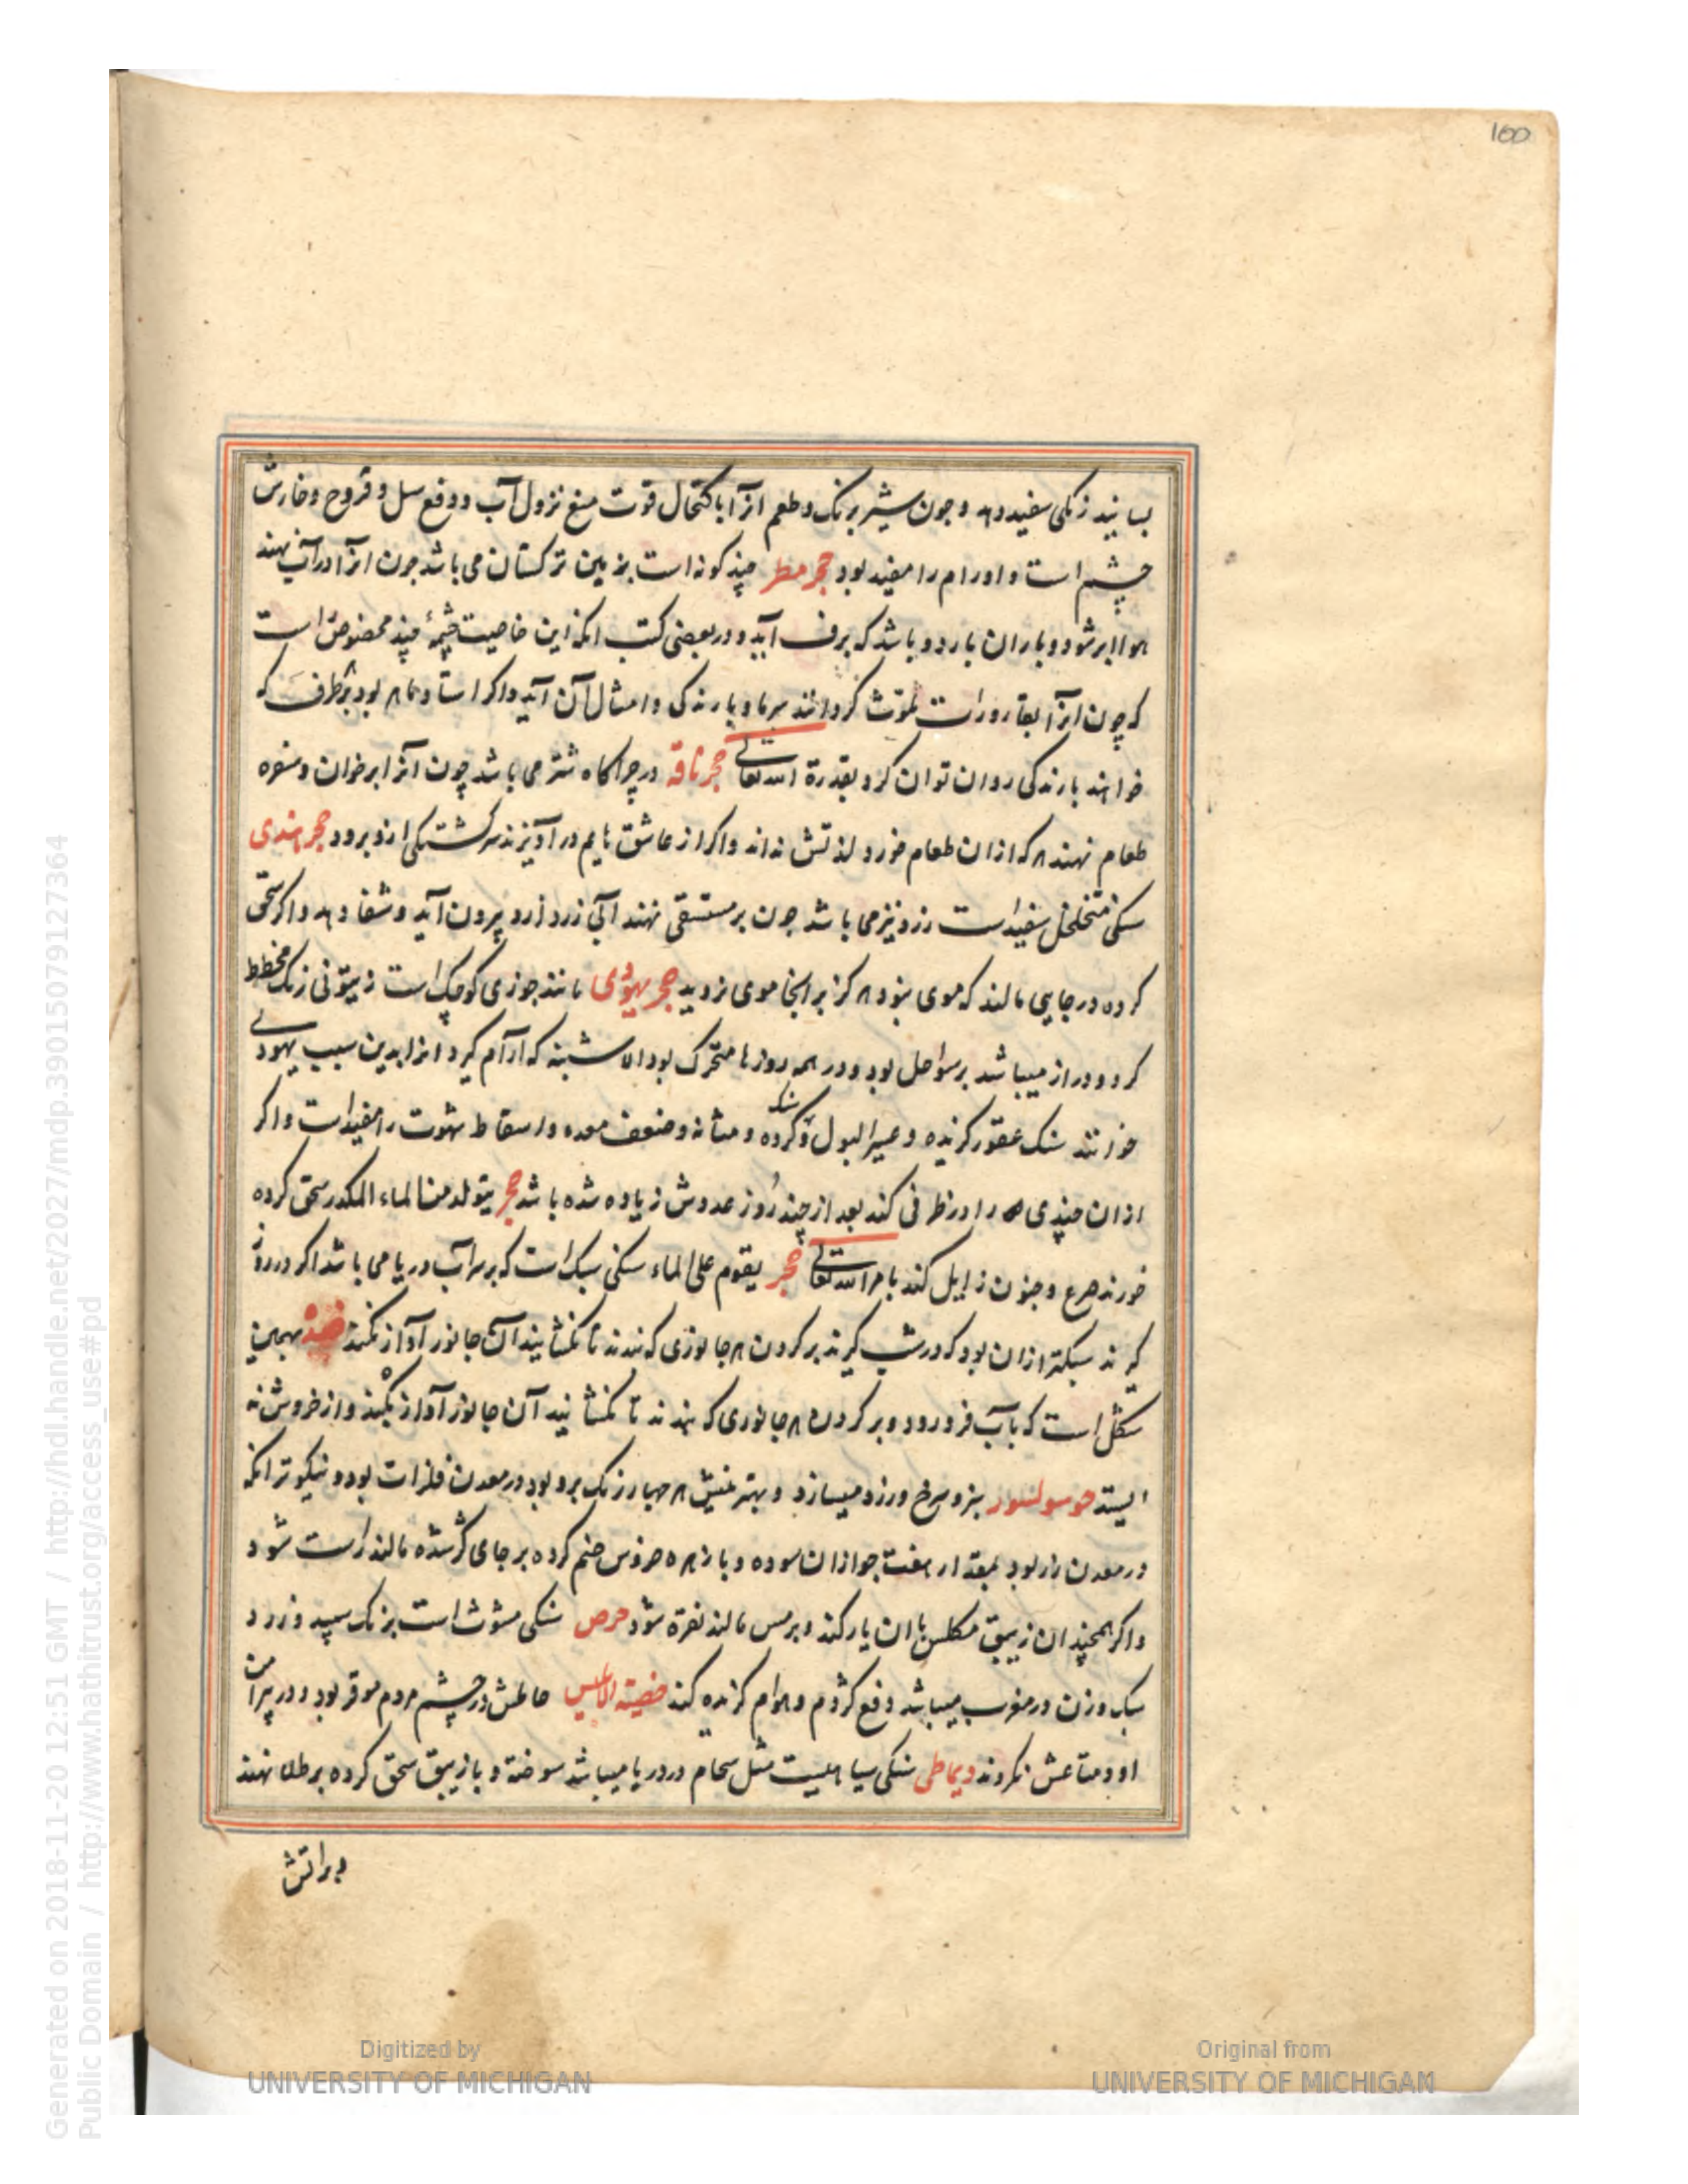 100
بسایند زنکی سفید دهد و چون شیر برنک و طعم انرا باکتحال قوت منع نزول آب و دفع سل و قروح و خارش
چشم است و اورام را مفید بود حجر مطر چند کونه است بزمین ترکستان می باشد چون انرا در آب نهند
هوا ابر شود و باران بارد و باشد که برف آید و در بعضی کتب انکه این خاصیت چشمهٔ چند مخصوص است
که چون انرا بقاذورات ملوث کردانند سرما و بارندکی و امثال آن آید و اکر بود بهر طرف که
خواهند بارندکی روان توان کرد بقدرة الله تعالی حجر ناقه در چراکاه شتر می باشد چون انرا بر خوان و سفره
طعام نهند هر که ازان طعام خورد لذتش نداند و اکر از عاشق در آویزند سرکشتکی ازو برود حجر هندی
سنکی متخلخل سفید است زرد نیز می باشد چون بر مستسقی نهند آبی زرد ازو بیرون آید و شفا دهد و اکر سحق
کرده در جایی مالند که موی بنود هرکز بر انجا موی نروید حجر یهودی مانند جوزی کوچک است زیتونی رنک مخطط
کرد و دراز میباشد بر سواحل بود و در همه روزها متحرک بود الا شنبه که آرام کیرد انرا بدین سبب یهودی
خوانند سنک عقور کزیده و عسر البول و سنک کرده و مثانه و ضعف معده و اسقاط شهوت را مفید است و اکر
ازان چندی را در ظرفی کند بعد از چند روز عددش زیاده شده باشد حجر یتولد من الماء المکدر سحق کرده
خورند صرع و جنون زایل کند بامر الله تعالی حجر یقوم علی الماء سنکی سبک است که بر سر آب دریا می باشد اکر در روز
کیرند سبکتر ازان بود که در شب کیرند بر کردن هر جانوری که بندند تا نکشایند آن جانور آواز نکند ضده بهمین
شکل است که بآب فرو رود و بر کردن هر جانوری که بندند تا نکشایند آن جانور آواز نکند و از خروش نه
ایستد سبز و سرخ و زرد میسازد و بهترینش هر چهار رنک برو بود در معدن فلزات بود و نیکوتر انکه
در معدن زر بود بمقدار هفت جو ازان سوده و با زهره خروس ضم کرده بر جای کژ شده مالند راست شود
و اکر همچندان زیبق مکلس با ان یار کند و بر مس مالند نقره شود حرص سنکی مشوث است برنک سپید و زرد
سبک وزن در مغرب میباشد دفع کژدم و هوام کزنده کند خصیة الابلیس حاملش در چشم مردم موقر بود و در پیرامن
او و متاعش نکردند دیماطی سنکی سیاهیست مثل سحام در دریا میباشد سوخته و با زیبق سحق کرده بر طلا نهند
و براتش
Generated on 2018-11-20 12:51 GMT / http://hdl.handle.net/2027/mdp.39015079127364
Public Domain / http://www.hathitrust.org/access_use#pd
Digitized by
UNIVERSITY OF MICHIGAN
Original from
UNIVERSITY OF MICHIGAN